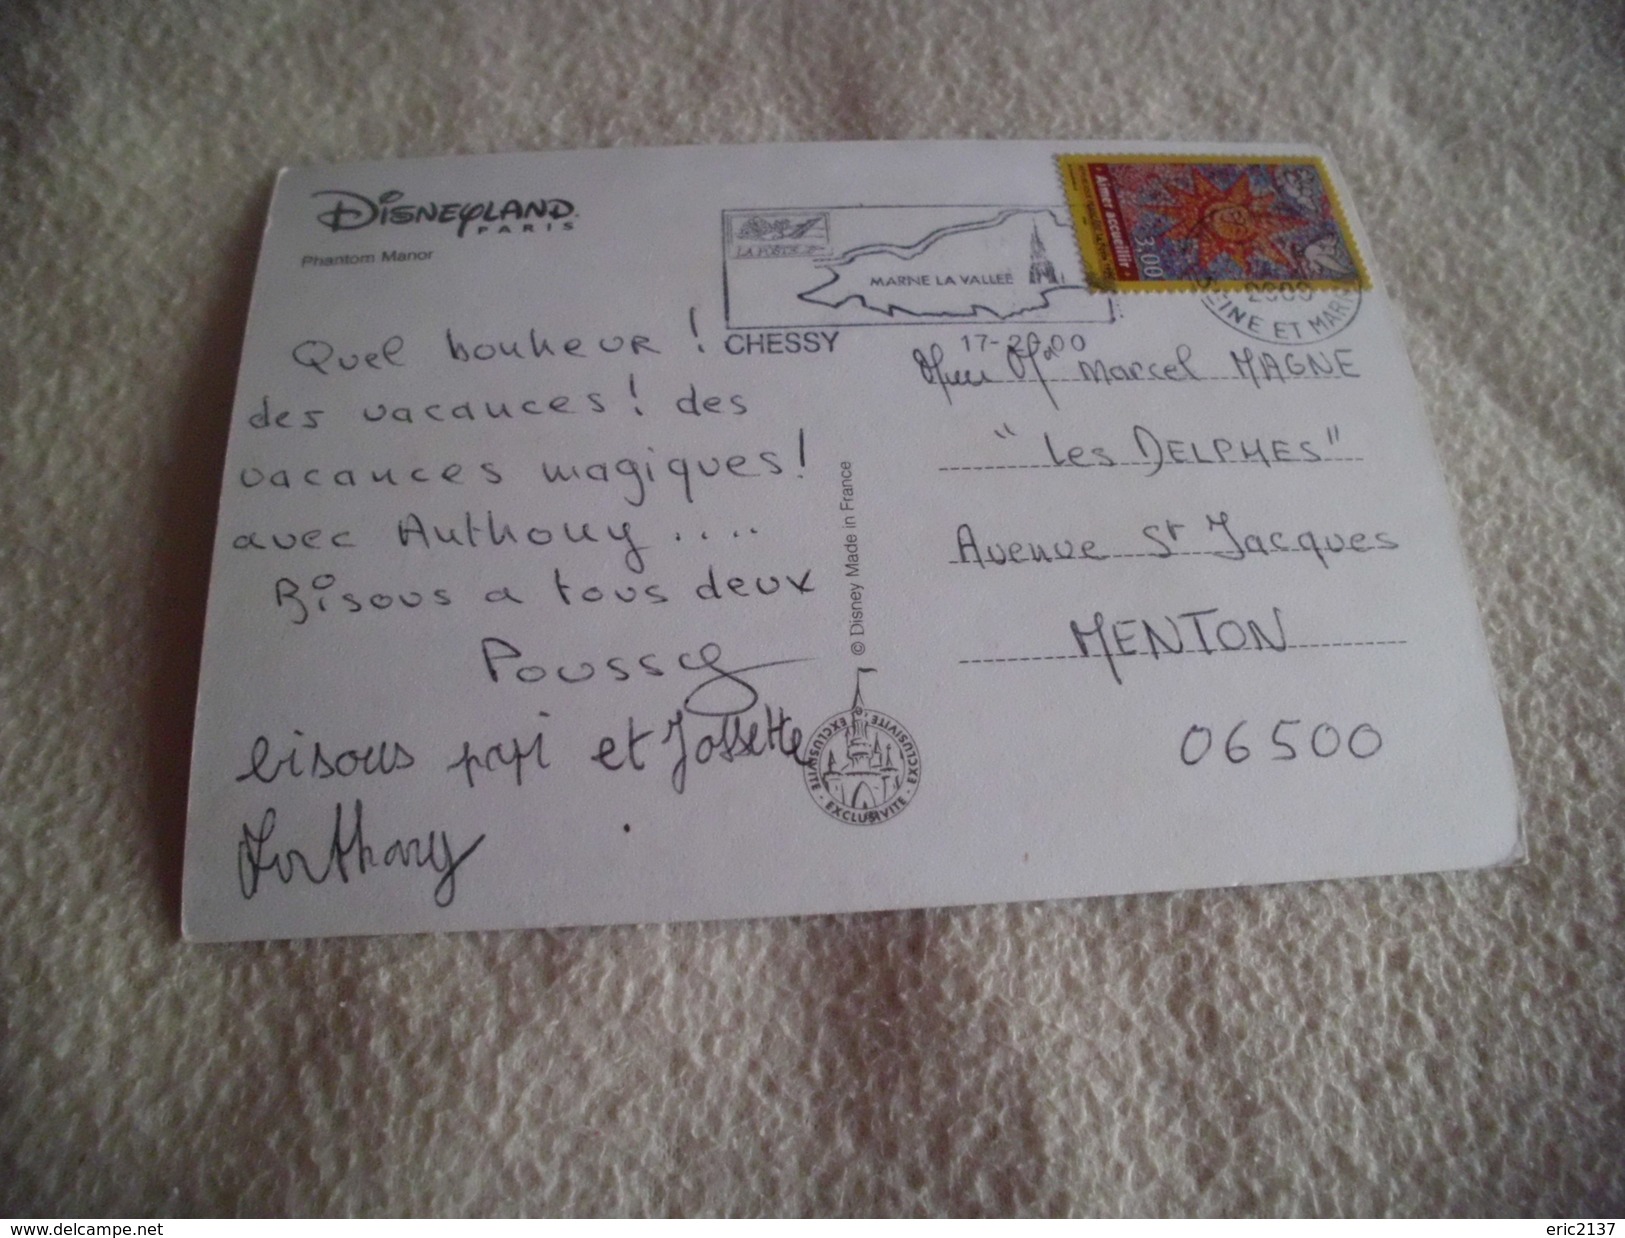 DISNEYLAND
PARIS
Phantom Manor
Quel bonheur !
des vacances ! des
vacances magiques !
avec Anthony ....
Bisous a tous deux
Poussy
bisous papi et Josette
Anthony
LA POSTE
MARNE LA VALLEE
CHESSY
17-20 00
2000
SEINE ET MARNE
Aimer accueillir
3,00
© Disney Made in France
EXCLUSIVITE · EXCLUSIVITE · EXCLUSIVITE
Marcel MAGNE
"Les DELPHES"
Avenue St Jacques
MENTON
06500
www.delcampe.net
eric2137